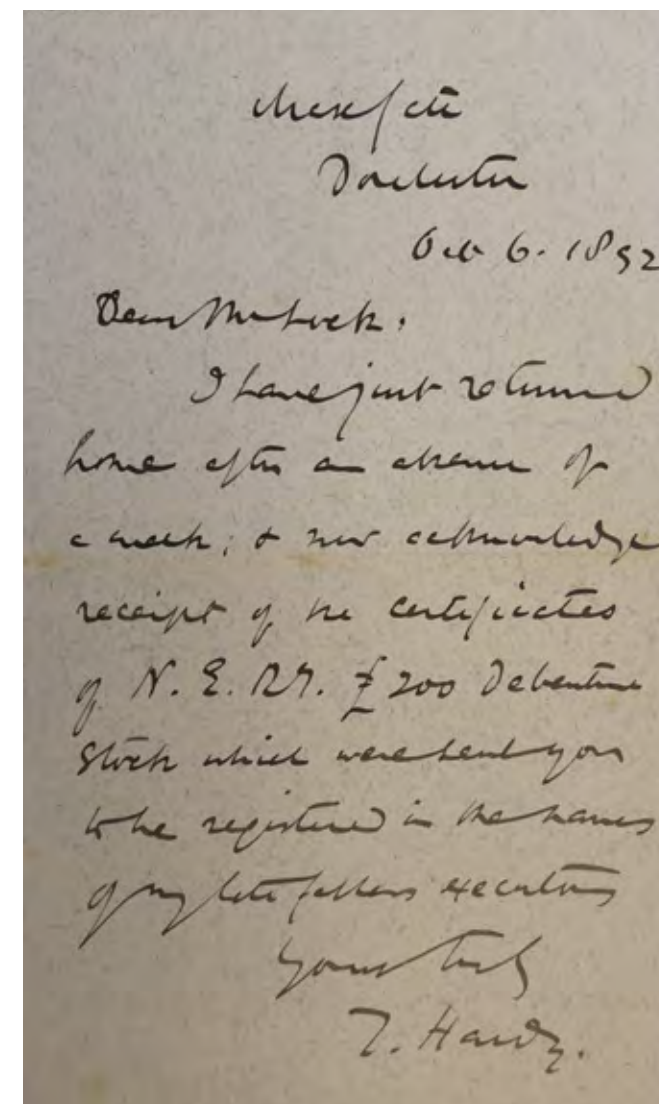 Max Gate
Dorchester
Oct 6. 1892
Dear Mr Lock:
I have just returned
home after an absence of
a week; & now acknowledge
receipt of the certificates
of N. E. Ry. £200 Debenture
Stock which were sent you
to be registered in the names
of my late father's executors
Yours truly
T. Hardy.